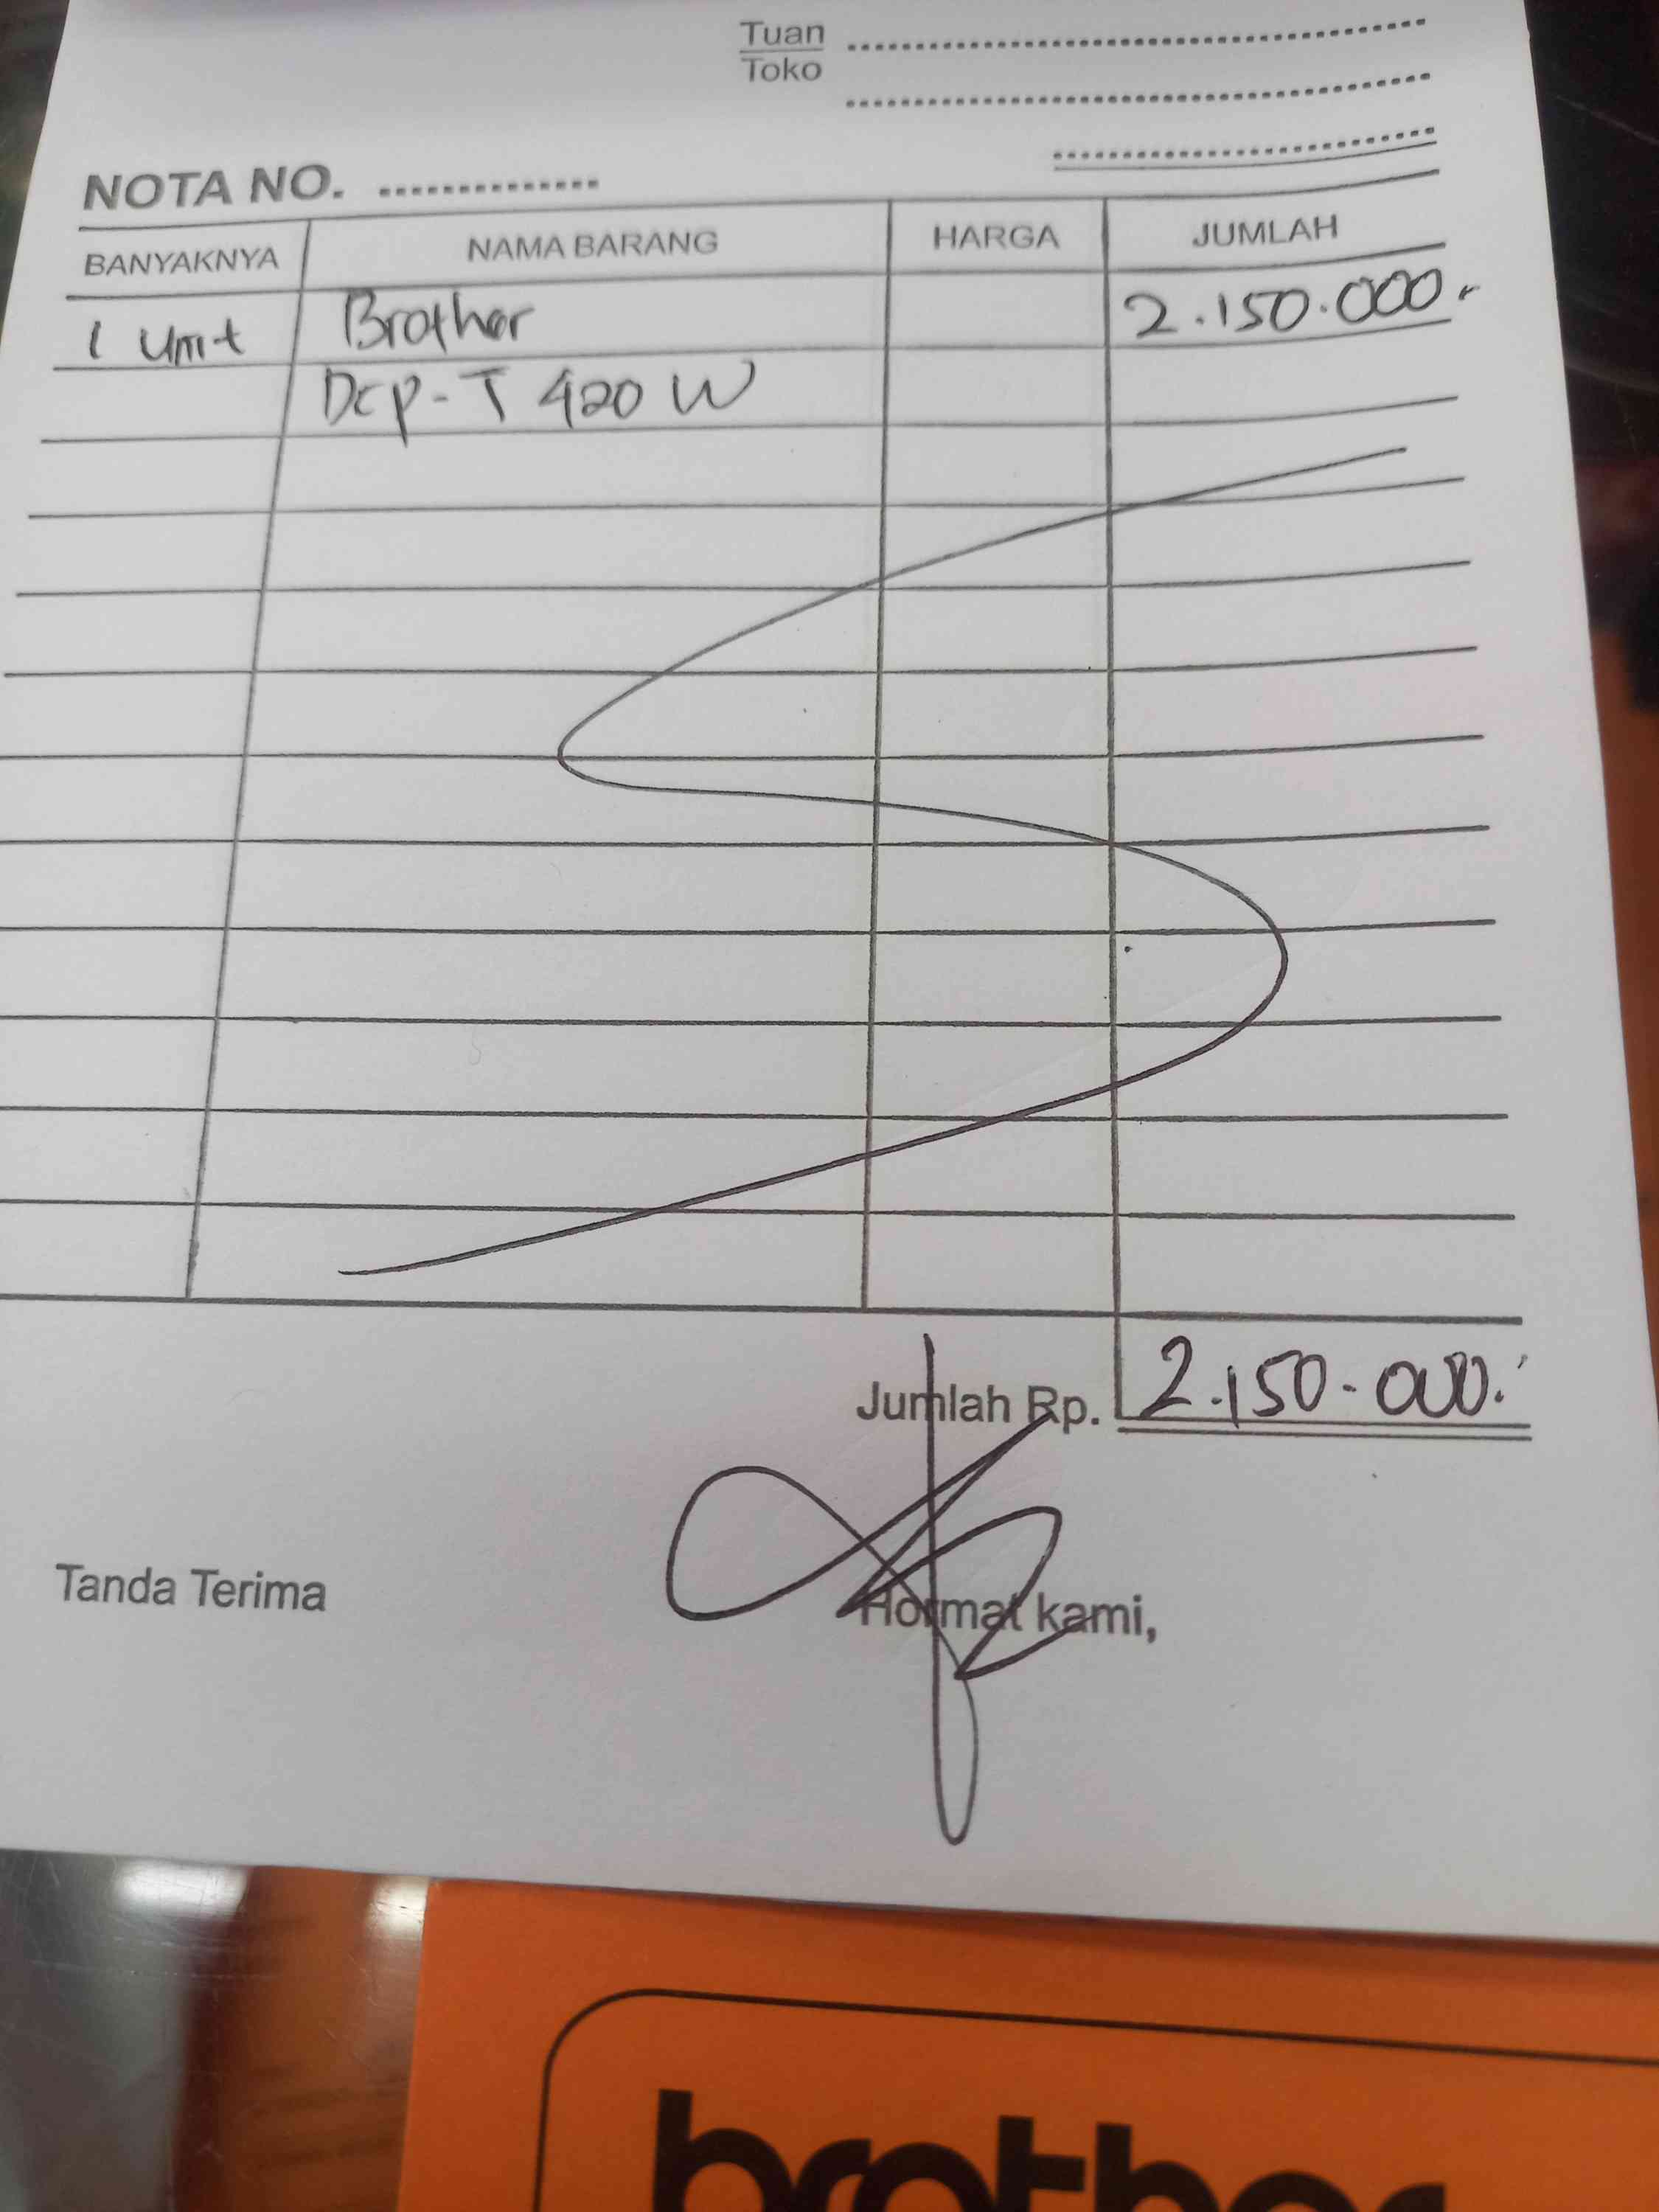 Tuan
Toko
NOTA NO.
BANYAKNYA NAMA BARANG HARGA JUMLAH
1 Unit Brother 2.150.000.
Dcp-T 420 W
Jumlah Rp. 2.150.000.
Tanda Terima Hormat kami,
brother